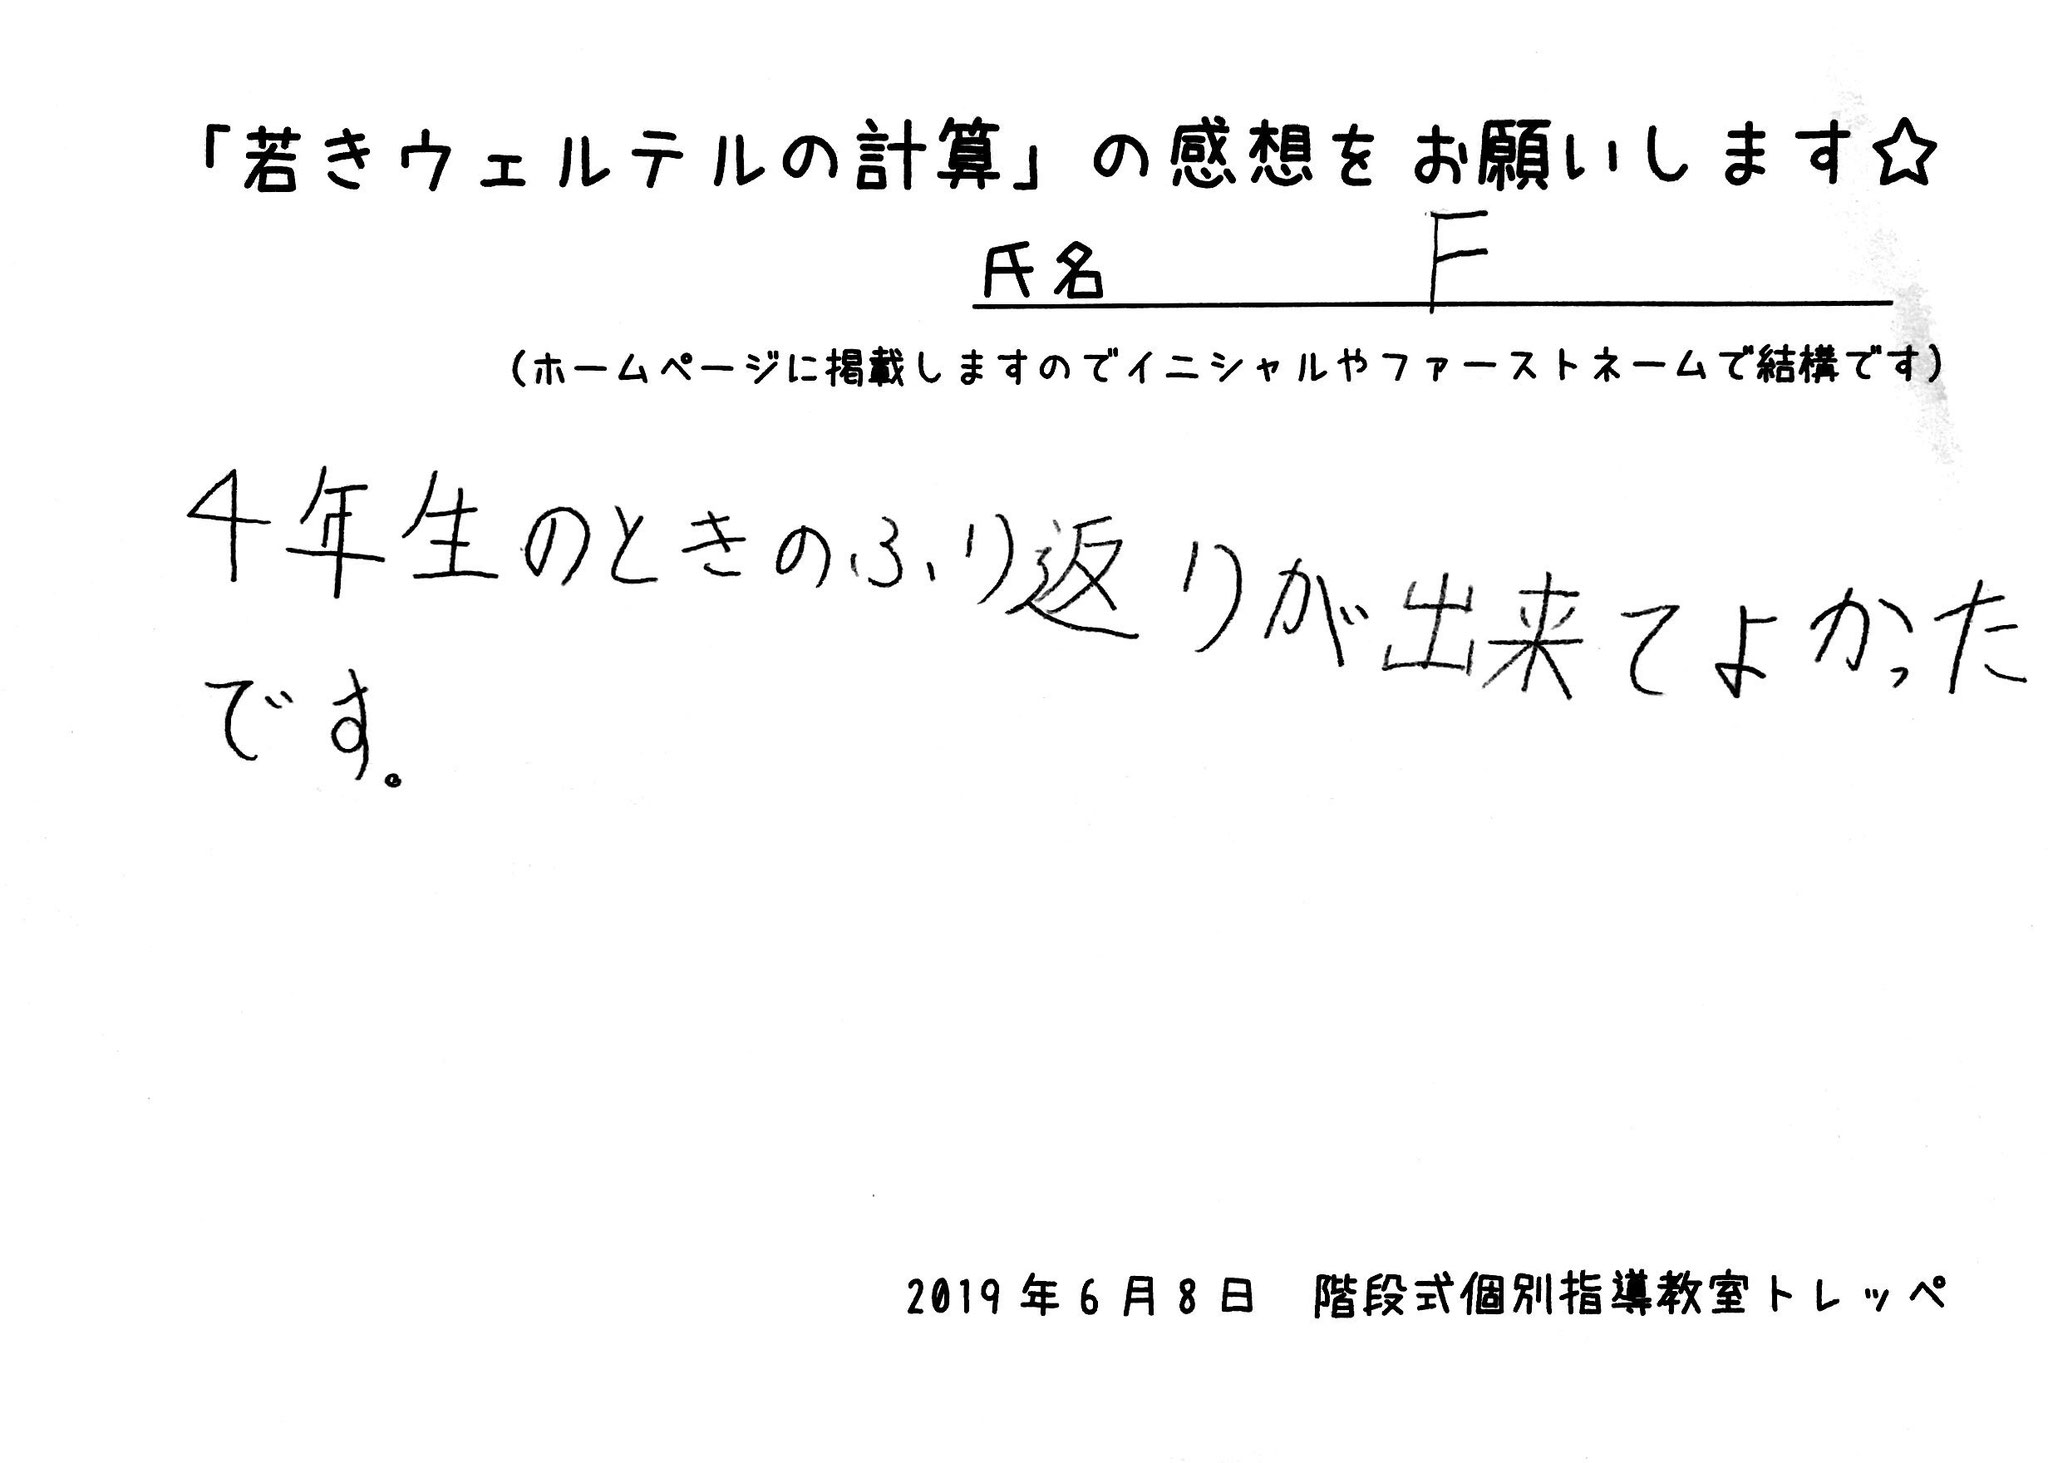 「若きウェルテルの計算」の感想をお願いします☆
氏名 F
(ホームページに掲載しますのでイニシャルやファーストネームで結構です)
4年生のときのふり返りが出来てよかった
です。
2019年6月8日 階段式個別指導教室トレッペ